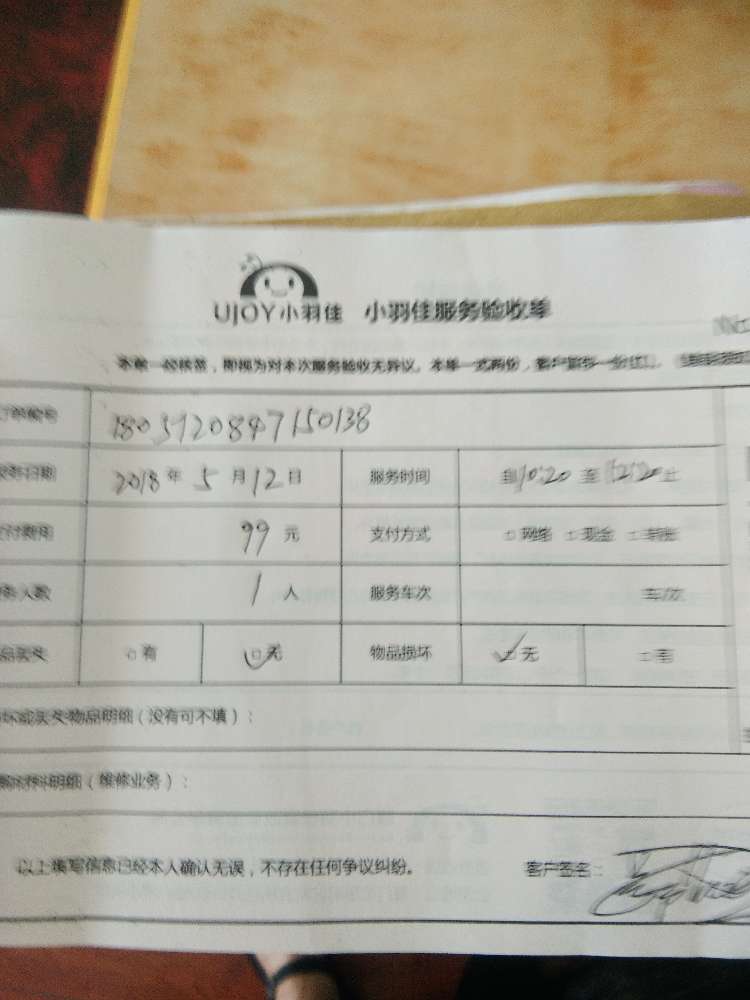 UJOY小羽佳 小羽佳服务验收单
本单一经核签，即视为对本次服务验收无异议。本单一式两份，客户留存一份
订单编号 1805120847150138
服务日期 2018年5月12日 服务时间 自10:20至12:20止
支付费用 99元 支付方式 □网络 □现金 □转账
服务人数 1人 服务车次 车次
物品丢失 □有 ☑无 物品损坏 ☑无 □有
损坏或丢失物品明细（没有可不填）：
材料明细（维修业务）：
以上填写信息已经本人确认无误，不存在任何争议纠纷。 客户签名：